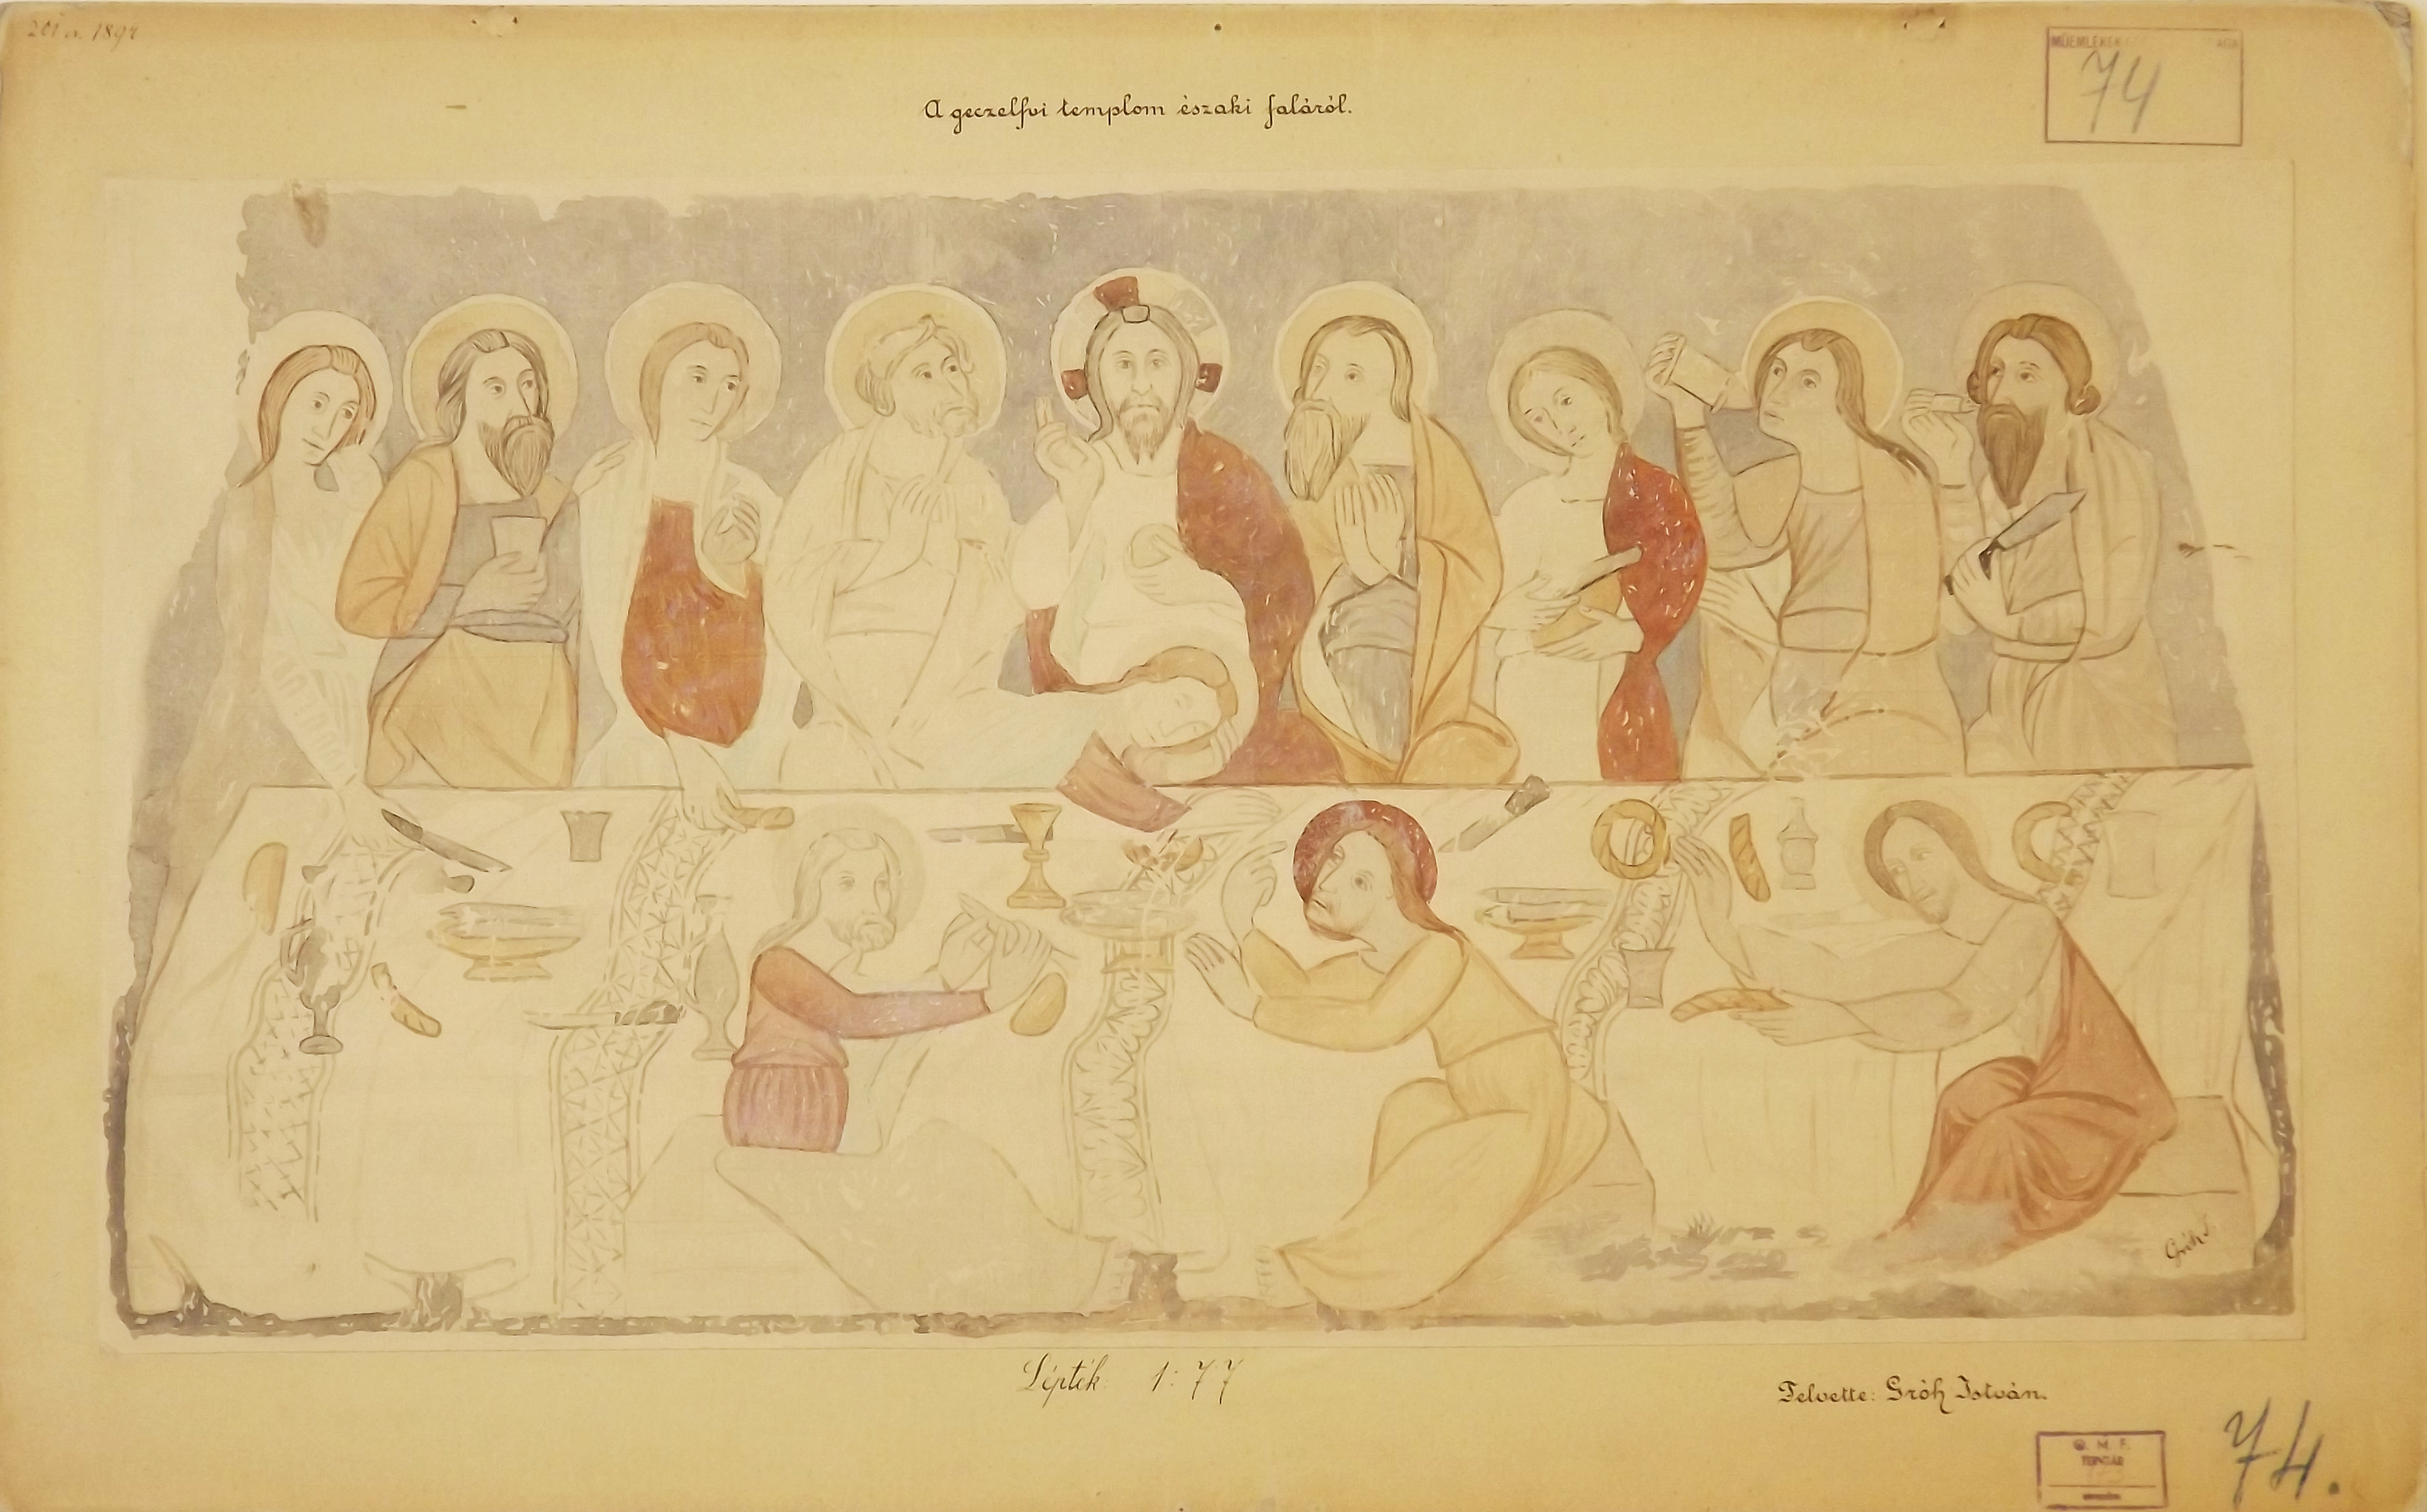 201 a. 1894
MŰEMLÉKEK
74
A geczelfvi templom északi faláról.
Gróh I.
Lépték 1:77
Felvette: Gróh István.
O. M. F.
TERVTÁR
74.